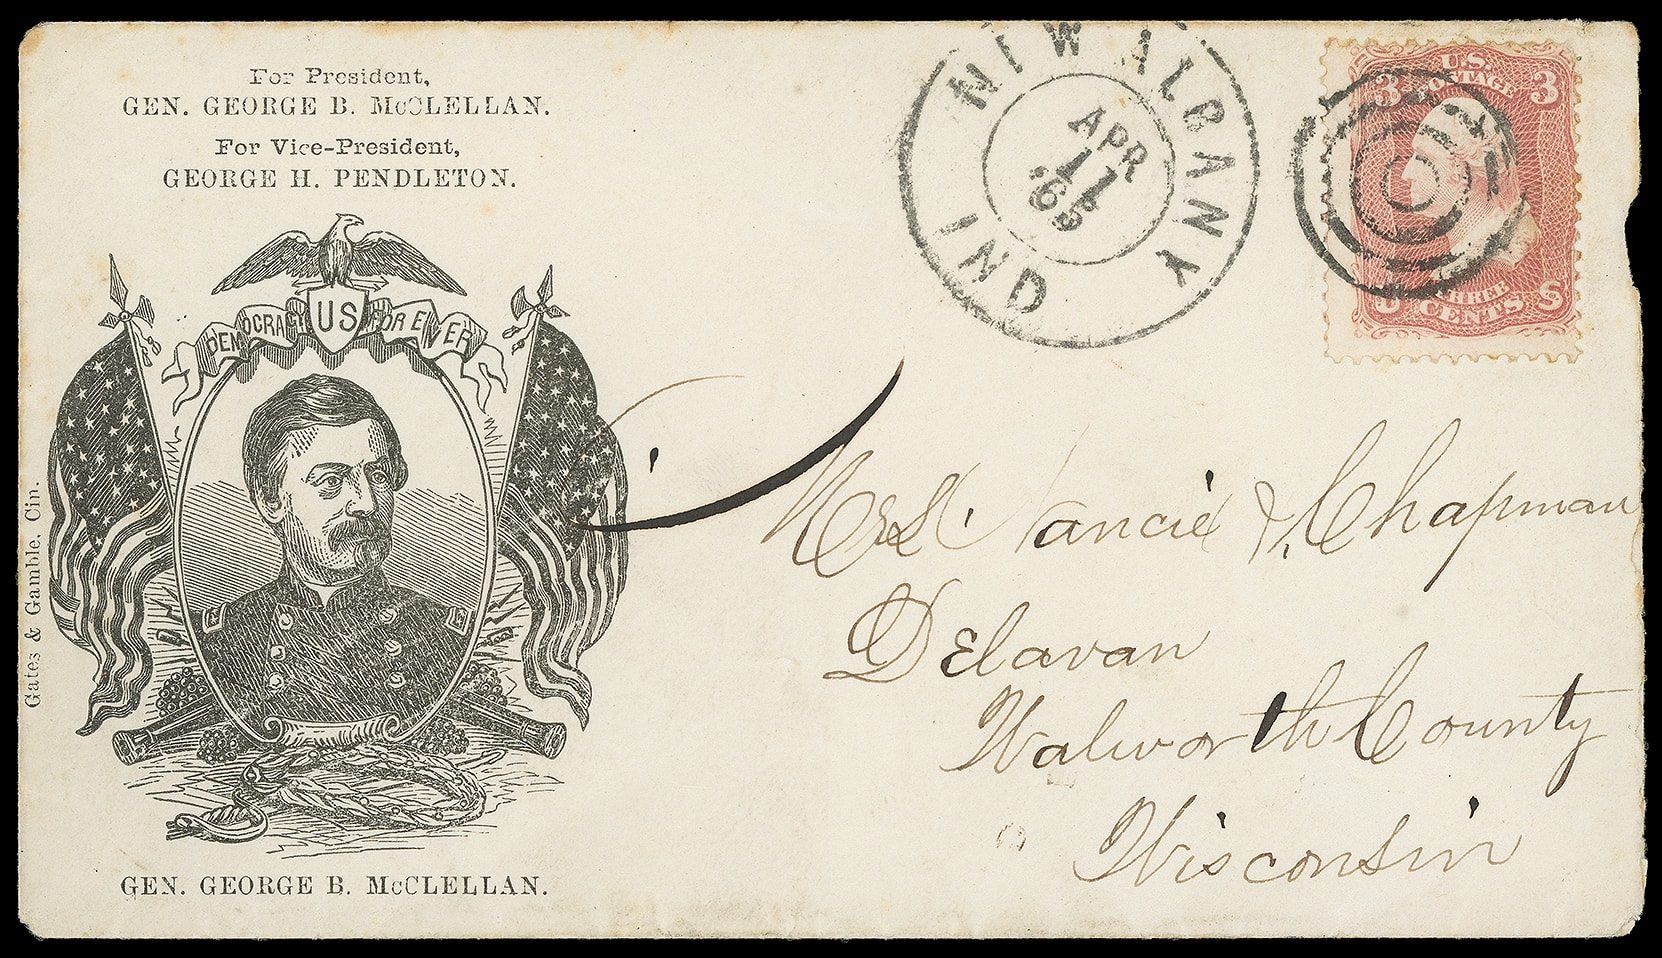 For President,
GEN. GEORGE B. McCLELLAN.
For Vice-President,
GEORGE H. PENDLETON.
DEMOCRACY US FOR EVER
Gates & Gamble, Cin.
GEN. GEORGE B. McCLELLAN.
NEW ALBANY
APR
11
'65
IND
U.S.
POSTAGE
3 3
THREE
CENTS
U S
Chapman
Delavan
Walworth County
Wisconsin